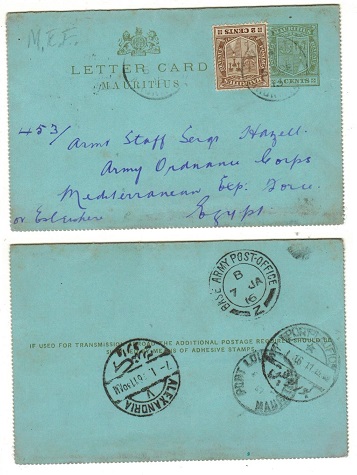 M.E.F.
LETTER CARD
MAURITIUS
MAURITIUS
2 CENTS
4 CENTS
453/ Arms Staff Sergt Hazell.
Army Ordnance Corps
Mediterranean Exp. Force.
or Elsewhere
Egypt
BASE ARMY POST-OFFICE
B
7 JA
16
Z
IF USED FOR TRANSMISSION THE ADDITIONAL POSTAGE REQUIRED SHOULD BE
MEANS OF ADHESIVE STAMPS
ALEXANDRIA
PORT LOUIS